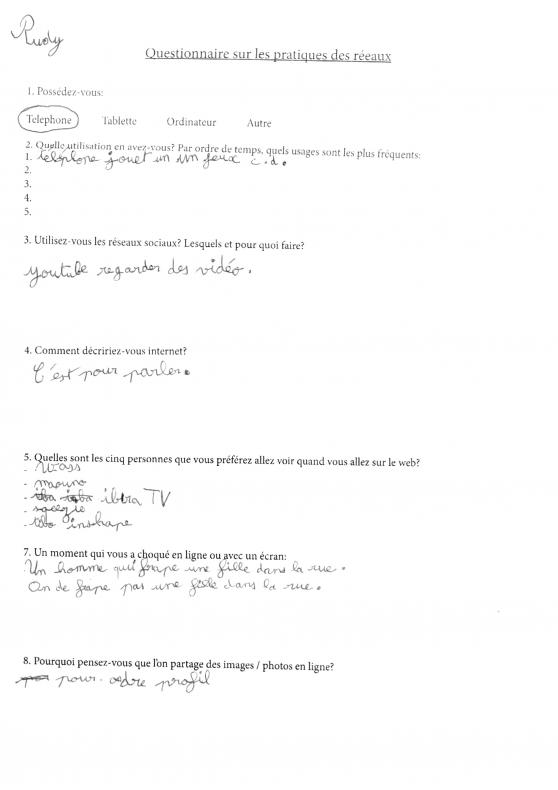 Rudy
Questionnaire sur les pratiques des réeaux
1. Possédez-vous:
Telephone Tablette Ordinateur Autre
2. Quelle utilisation en avez-vous? Par ordre de temps, quels usages sont les plus fréquents:
1. telephone jouet un jeux c.d.
2.
3.
4.
5.
3. Utilisez-vous les réseaux sociaux? Lesquels et pour quoi faire?
youtube regarder des vidéo.
4. Comment décririez-vous internet?
C'est pour parler.
5. Quelles sont les cinq personnes que vous préférez allez voir quand vous allez sur le web?
-
-
- ibra TV
-
- inshape
7. Un moment qui vous a choqué en ligne ou avec un écran:
Un homme qui frape une fille dans la rue.
On de frape pas une fille dans la rue.
8. Pourquoi pensez-vous que l'on partage des images / photos en ligne?
pour profil